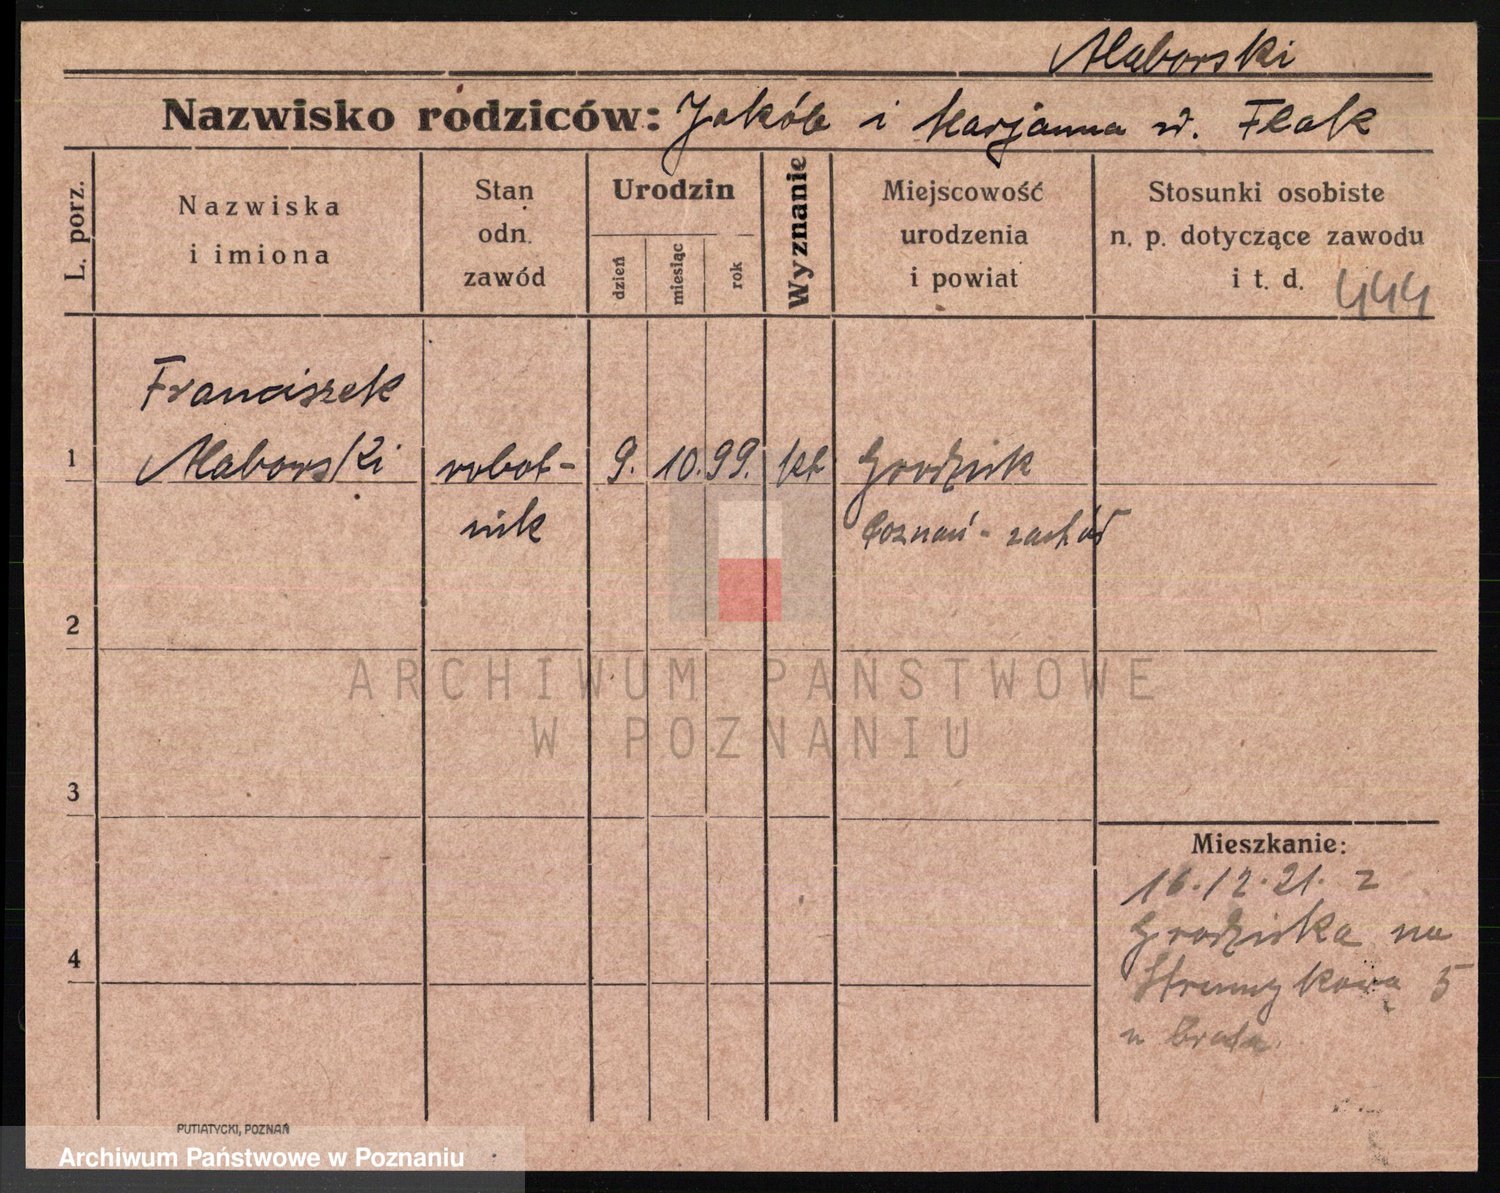 Maborski
Nazwisko rodziców: Jakób i Marjanna w. Flak
L. porz.
Nazwiska
i imiona
Stan
odn.
zawód
Urodzin
dzień
miesiąc
rok
Wyznanie
Miejscowość
urodzenia
i powiat
Stosunki osobiste
n. p. dotyczące zawodu
i t. d. 444
Franciszek
1 Maborski robot- 9. 10. 99. kt Grodzisk
nik Poznań - zachód
2
ARCHIWUM PAŃSTWOWE
W POZNANIU
3
Mieszkanie:
16.12.21. z
Grodziska na
4
Strumykową 5
u brata
PUTIATYCKI, POZNAŃ
Archiwum Państwowe w Poznaniu